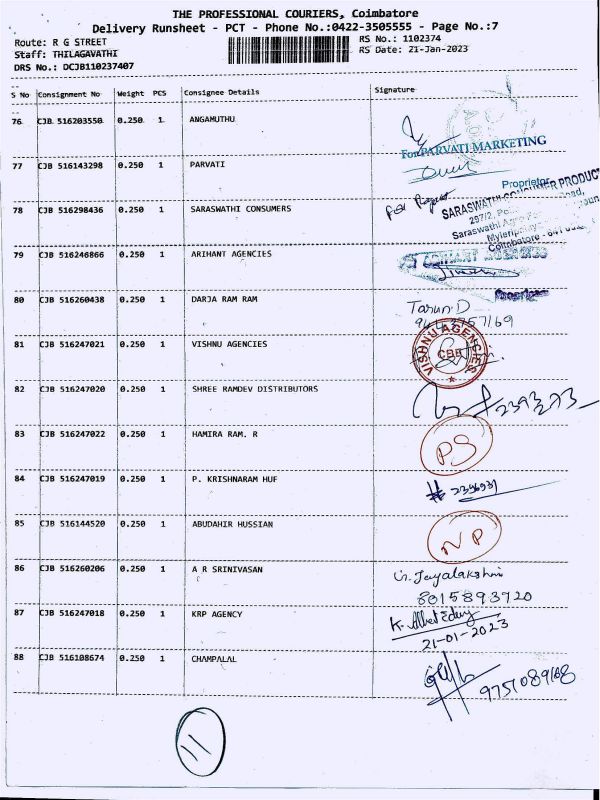 THE PROFESSIONAL COURIERS, Coimbatore
Delivery Runsheet - PCT - Phone No.:0422-3505555 - Page No.:7
Route: R G STREET
RS No.: 1102374
Staff: THILAGAVATHI
RS Date: 21-Jan-2023
DRS No.: DCJB110237407
S No Consignment No Weight PCS Consignee Details Signature
76 CJB 516203550 0.250 1 ANGAMUTHU
For PARVATI MARKETING
77 CJB 516143298 0.250 1 PARVATI
Proprietor
78 CJB 516298436 0.250 1 SARASWATHI CONSUMERS
SARASWATHI CONSUMER PRODUC
297/2,
Saraswathi
Coimbatore - 641
79 CJB 516246866 0.250 1 ARIHANT AGENCIES
ARIHANT AGENCIES
Proprietor
80 CJB 516260438 0.250 1 DARJA RAM RAM
Tarun D
81 CJB 516247021 0.250 1 VISHNU AGENCIES
VISHNU AGENCIES
CBE
82 CJB 516247020 0.250 1 SHREE RAMDEV DISTRIBUTORS
2393273
83 CJB 516247022 0.250 1 HAMIRA RAM. R
PS
84 CJB 516247019 0.250 1 P. KRISHNARAM HUF
85 CJB 516144520 0.250 1 ABUDAHIR HUSSIAN
NP
86 CJB 516260206 0.250 1 A R SRINIVASAN
Jayalakshmi
8015893720
87 CJB 516247018 0.250 1 KRP AGENCY
21-01-2023
88 CJB 516108674 0.250 1 CHAMPALAL
9751089108
11